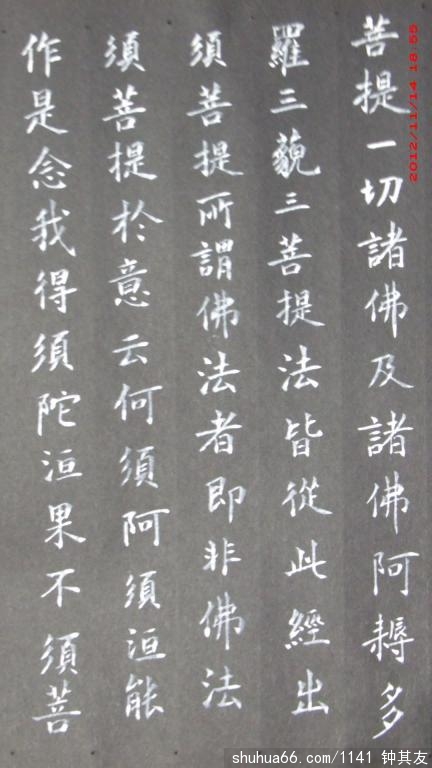 菩提一切諸佛及諸佛阿耨多
羅三藐三菩提法皆從此經出
須菩提所謂佛法者即非佛法
須菩提於意云何須阿須洹能
作是念我得須陀洹果不須菩
2012/11/14 18:55
shuhua66.com/1141 钟其友